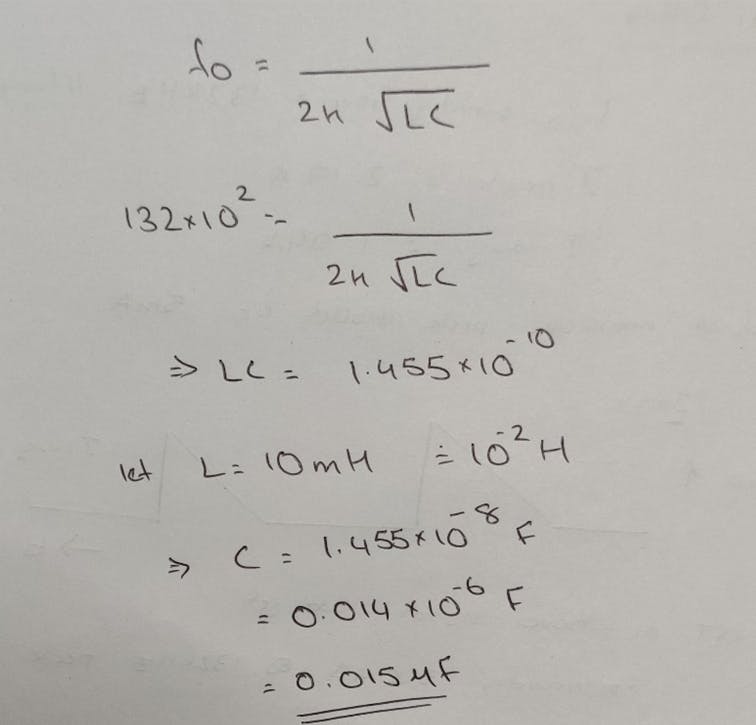 fo = 1 / 2π √LC
132×10² = 1 / 2π √LC
⇒ LC = 1.455×10⁻¹⁰
let L = 10mH = 10⁻² H
⇒ C = 1.455×10⁻⁸ F
= 0.014 × 10⁻⁶ F
= 0.015 μF